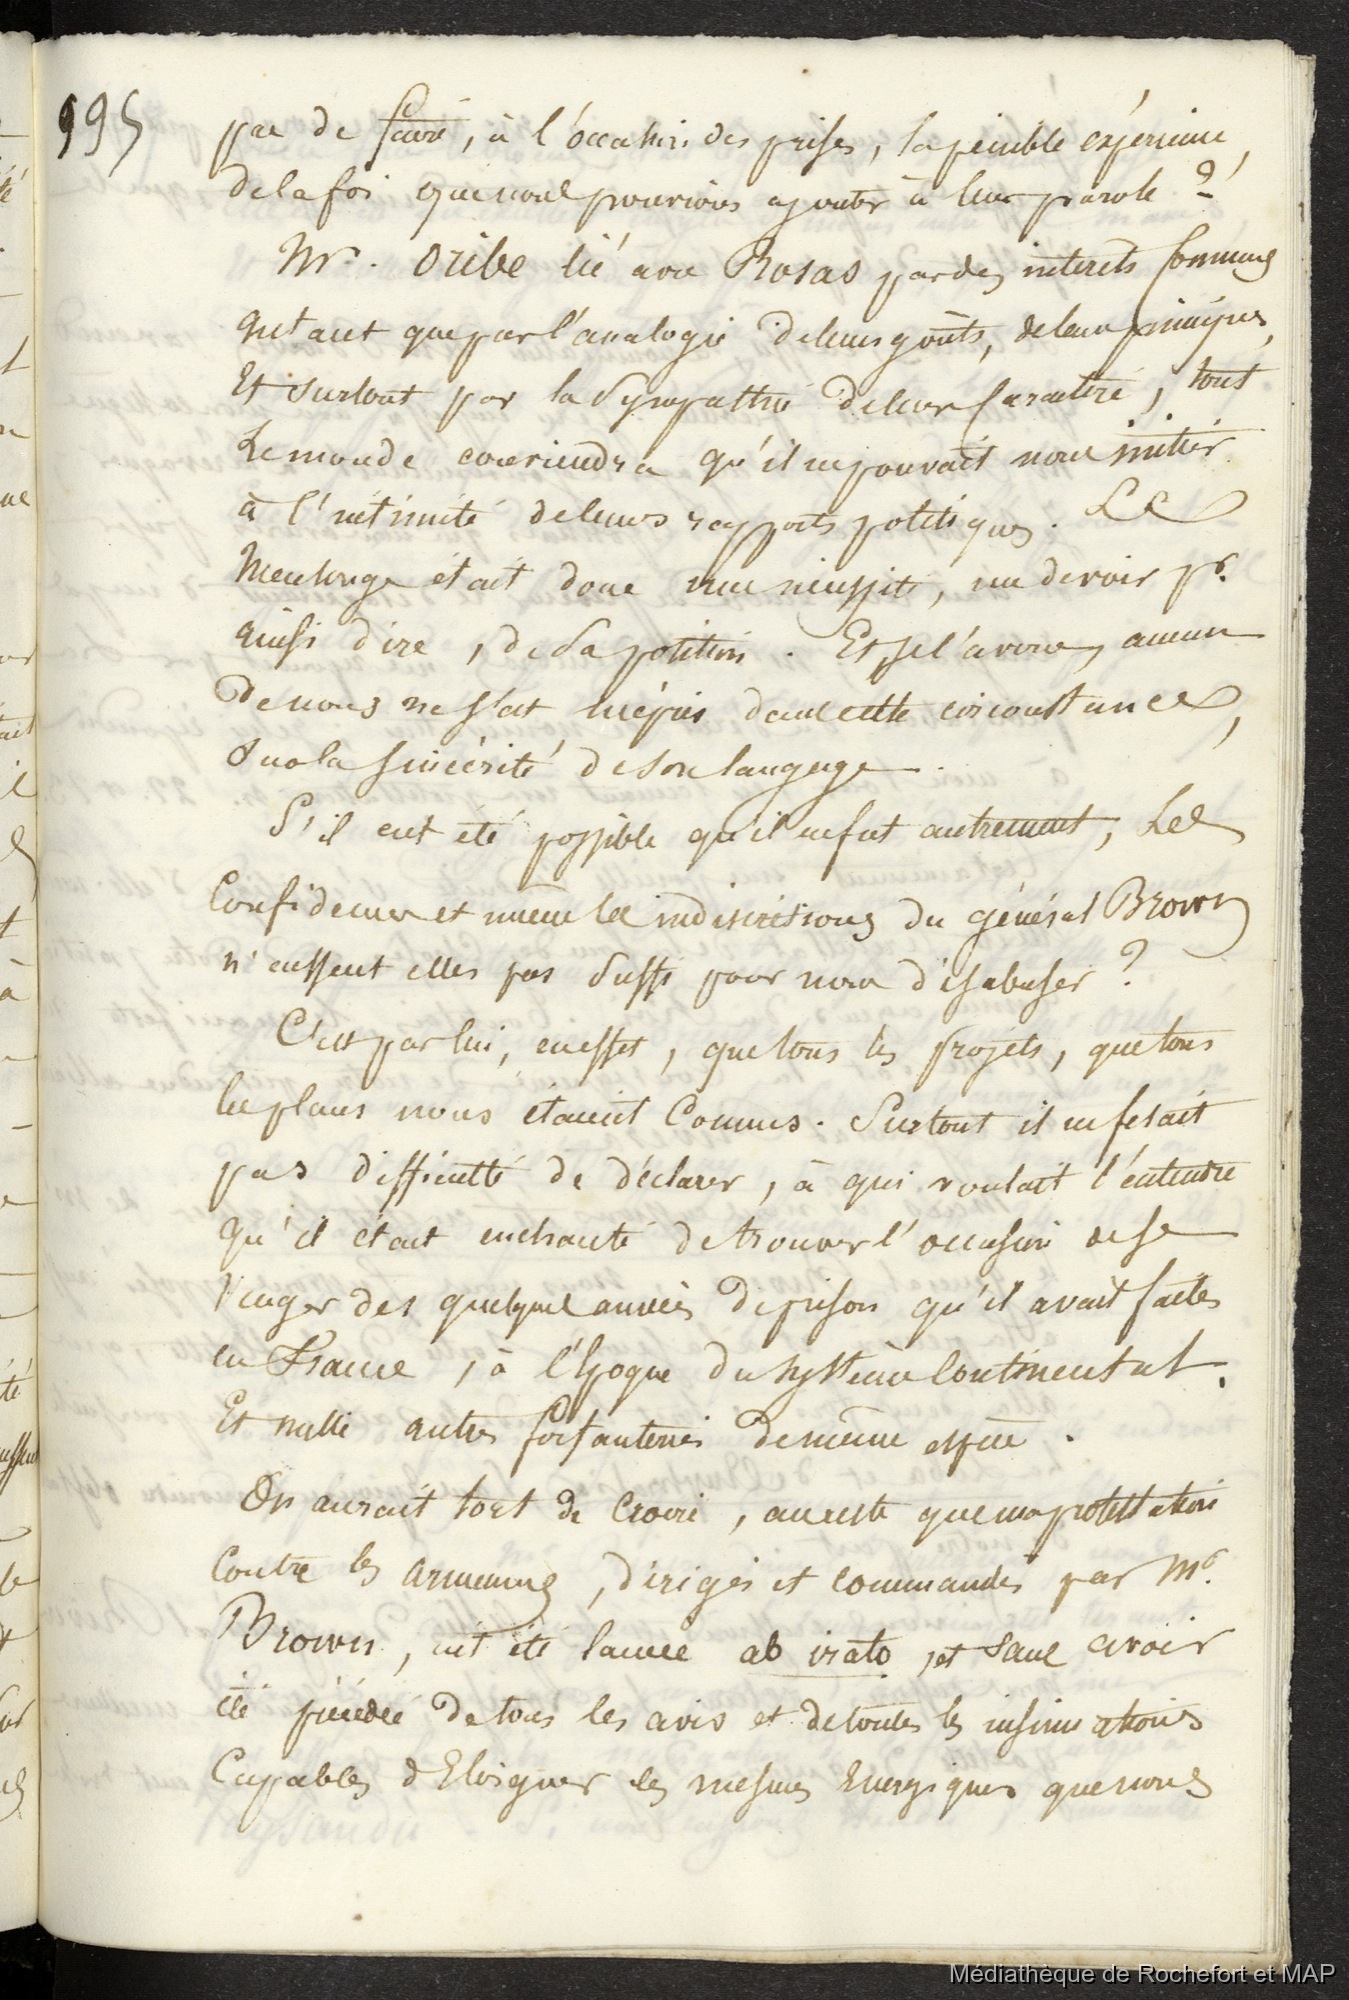 995
pas de faire, à l'occasion des prises, la pénible expérience,
de la foi que nous pouvions ajouter à leur parole ?
Mr. Oribe lié avec Rosas par des interets communs
autant que par l'analogie de leurs goûts, de leurs principes,
Et surtout par la Sympathie de leur Caractère, tout
Le monde conviendra qu'il ne pouvait nous initier
à l'intimité de leurs rapports politiques. Le
Mensonge était donc une nécessité, un devoir pr.
ainsi dire, de Sa position. Et je l'avoue, aucun
De nous ne s'est mépris dans cette circonstance,
Sur la sincérité de son langage.
S'il eut été possible qu'il en fut autrement, Les
Confidences et même les indiscrétions du général Brown
n'eussent elles pas Suffi pour nous désabuser ?
C'est par lui, en effet, que tous les projets, que tous
les plans nous étaient Connus. Surtout il ne fesait
pas difficulté de déclarer, à qui voulait l'entendre
qu'il était enchanté de trouver l'occasion de se
Venger des quelques années de prison qu'il avait faites
en France, à l'Epoque du système Continental.
Et mille autres forfanteries de même espèce.
On aurait tort de Croire, au reste que ma protestation
Contre les armemens, dirigés et commandés par Mr.
Brown, ait été lancée ab irato, et sans avoir
été précédée de tous les avis et de toutes les insinuations
Capables d'Eloigner les mesures Energiques que nous
Médiathèque de Rochefort et MAP